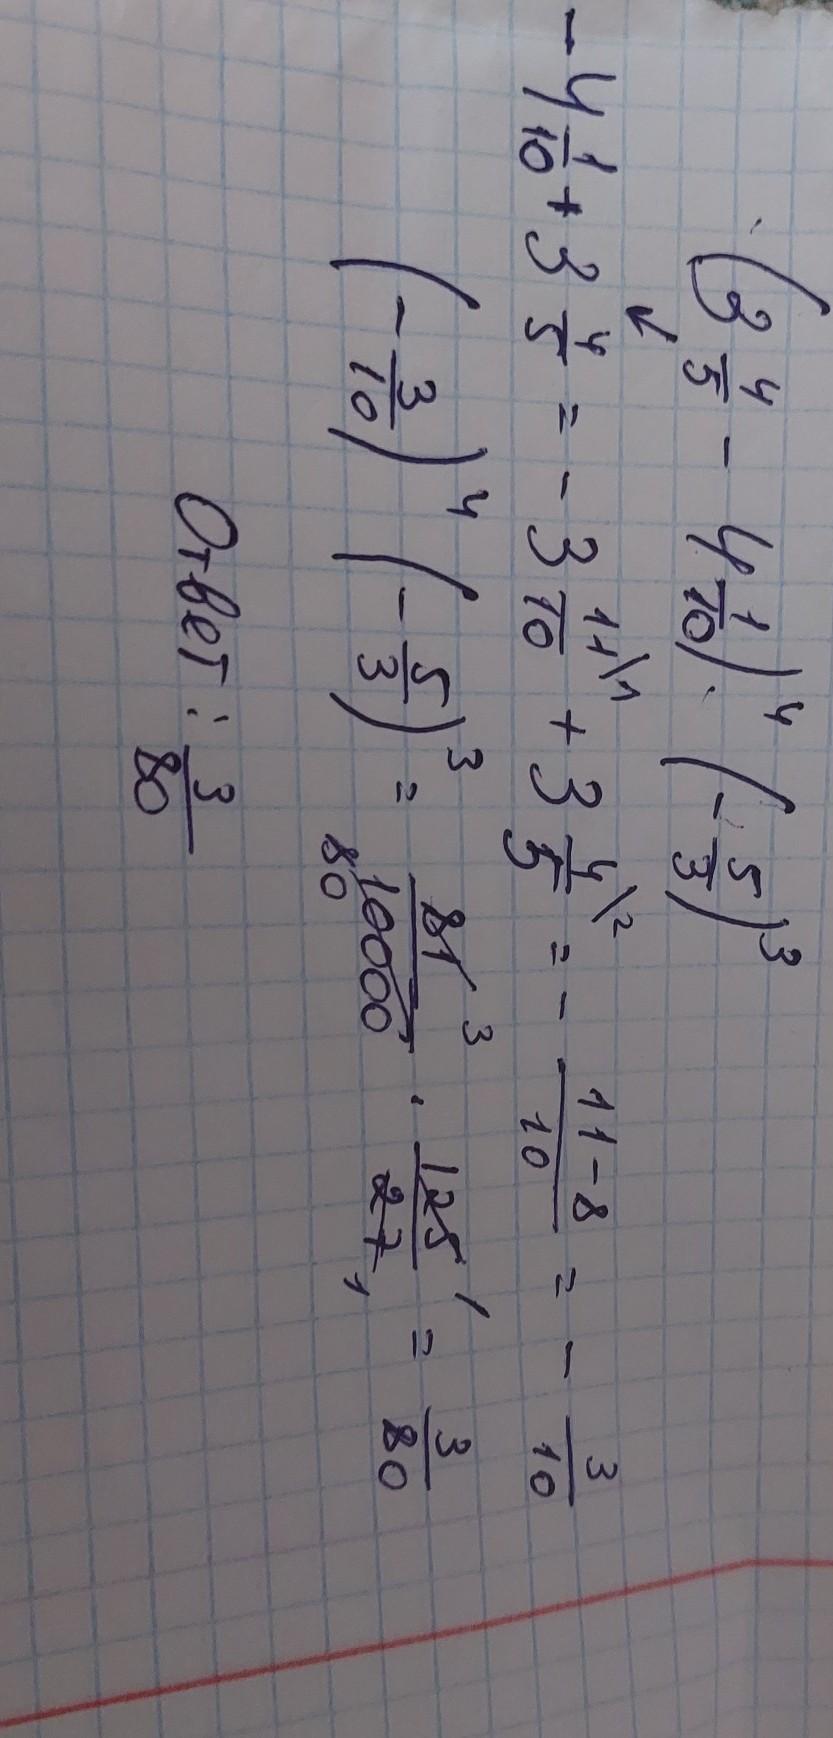 (3 4/5 - 4 1/10)^4 · (- 5/3)^3
- 4 1/10 + 3 4/5 = - 3 11\1/10 + 3 4\2/5 = - 11-8/10 = - 3/10
(- 3/10)^4 (- 5/3)^3 = 81 3/10000 80 · 125 1/27 1 = 3/80
Ответ: 3/80